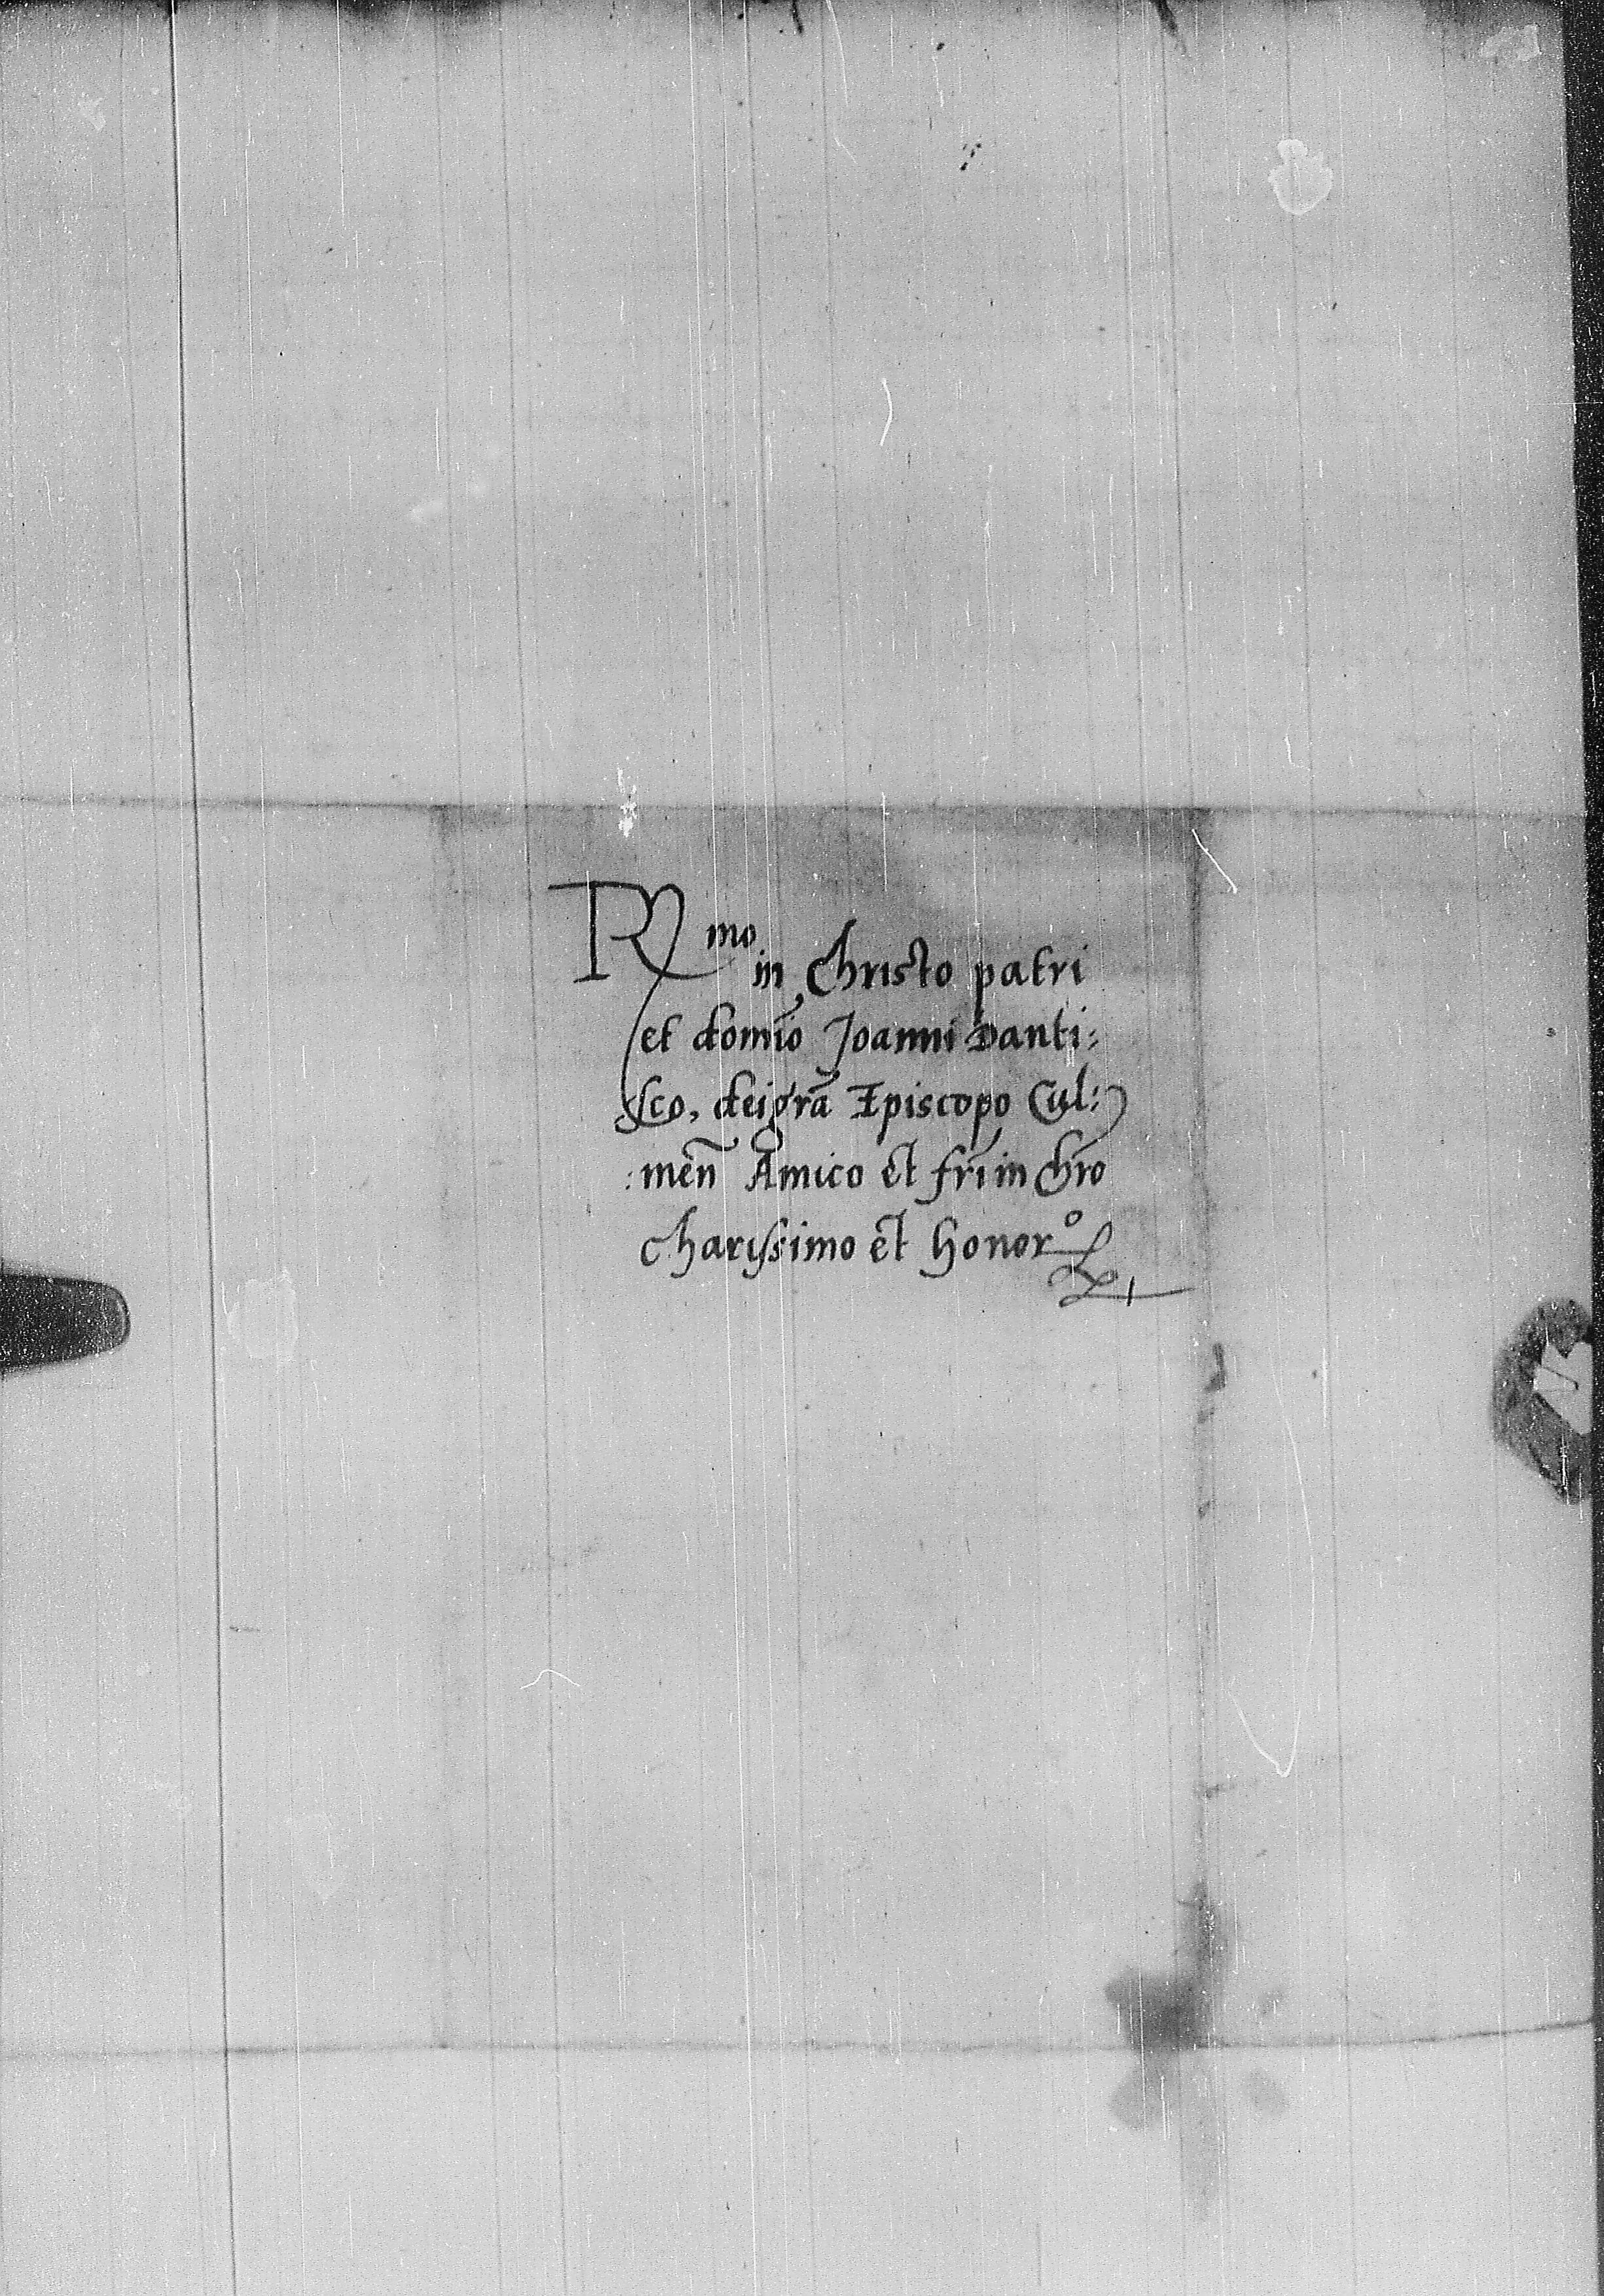 R mo in Christo patri
et domĩo Joanni Danti:
sco, dei grã Episcopo Cul:
:meñ Amico et frĩ in chrõ
charissimo et honor°